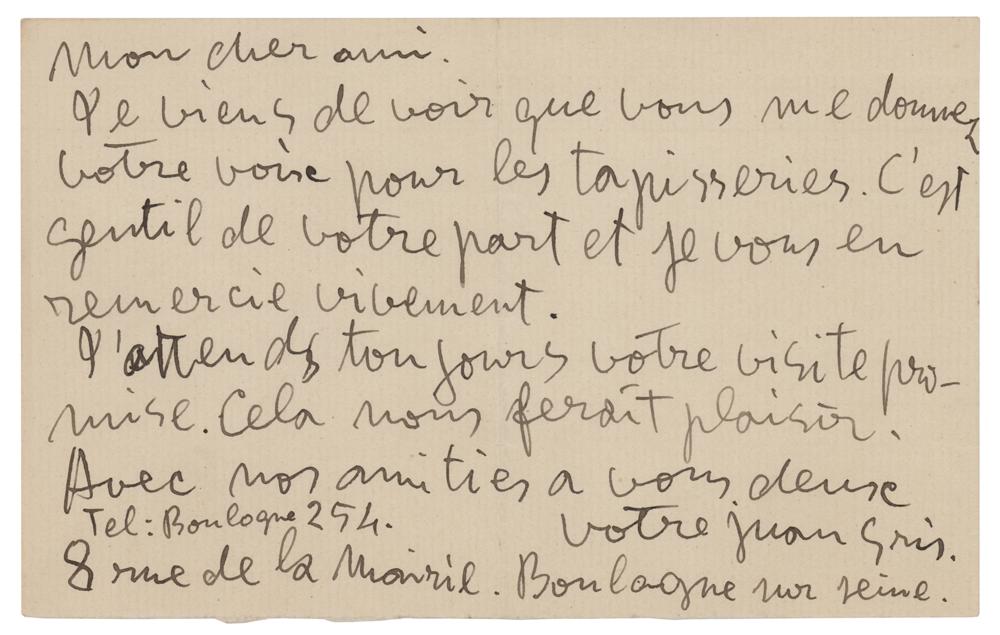 Mon cher ami.
Je viens de voir que vous me donnez
votre voix pour les tapisseries. C'est
gentil de votre part et je vous en
remercie vivement.
J'attends toujours votre visite pro-
mise. Cela nous ferait plaisir.
Avec nos amities a vous deux
Tel: Boulogne 254. votre Juan Gris.
8 rue de la Mairie. Boulogne sur seine.